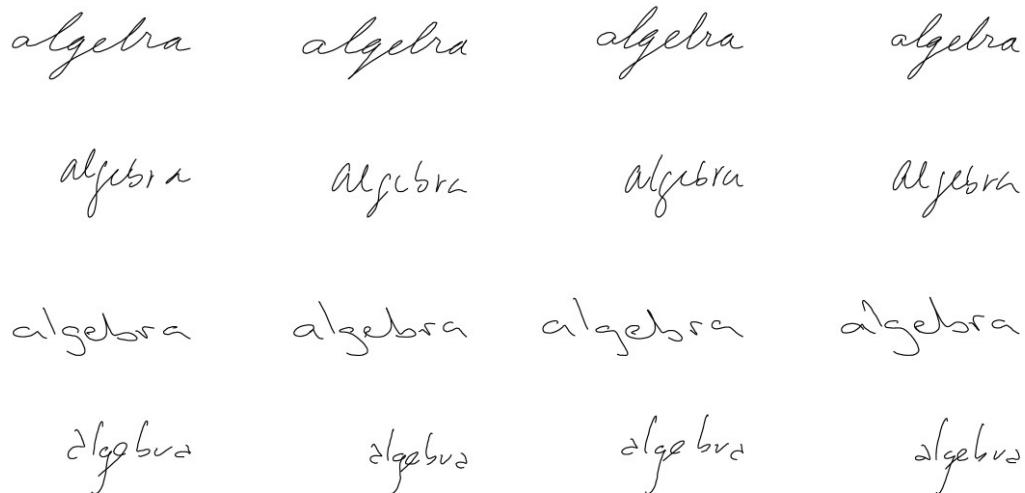 algebra algebra algebra algebra
algebra algebra algebra algebra
algebra algebra algebra algebra
algebra algebra algebra algebra